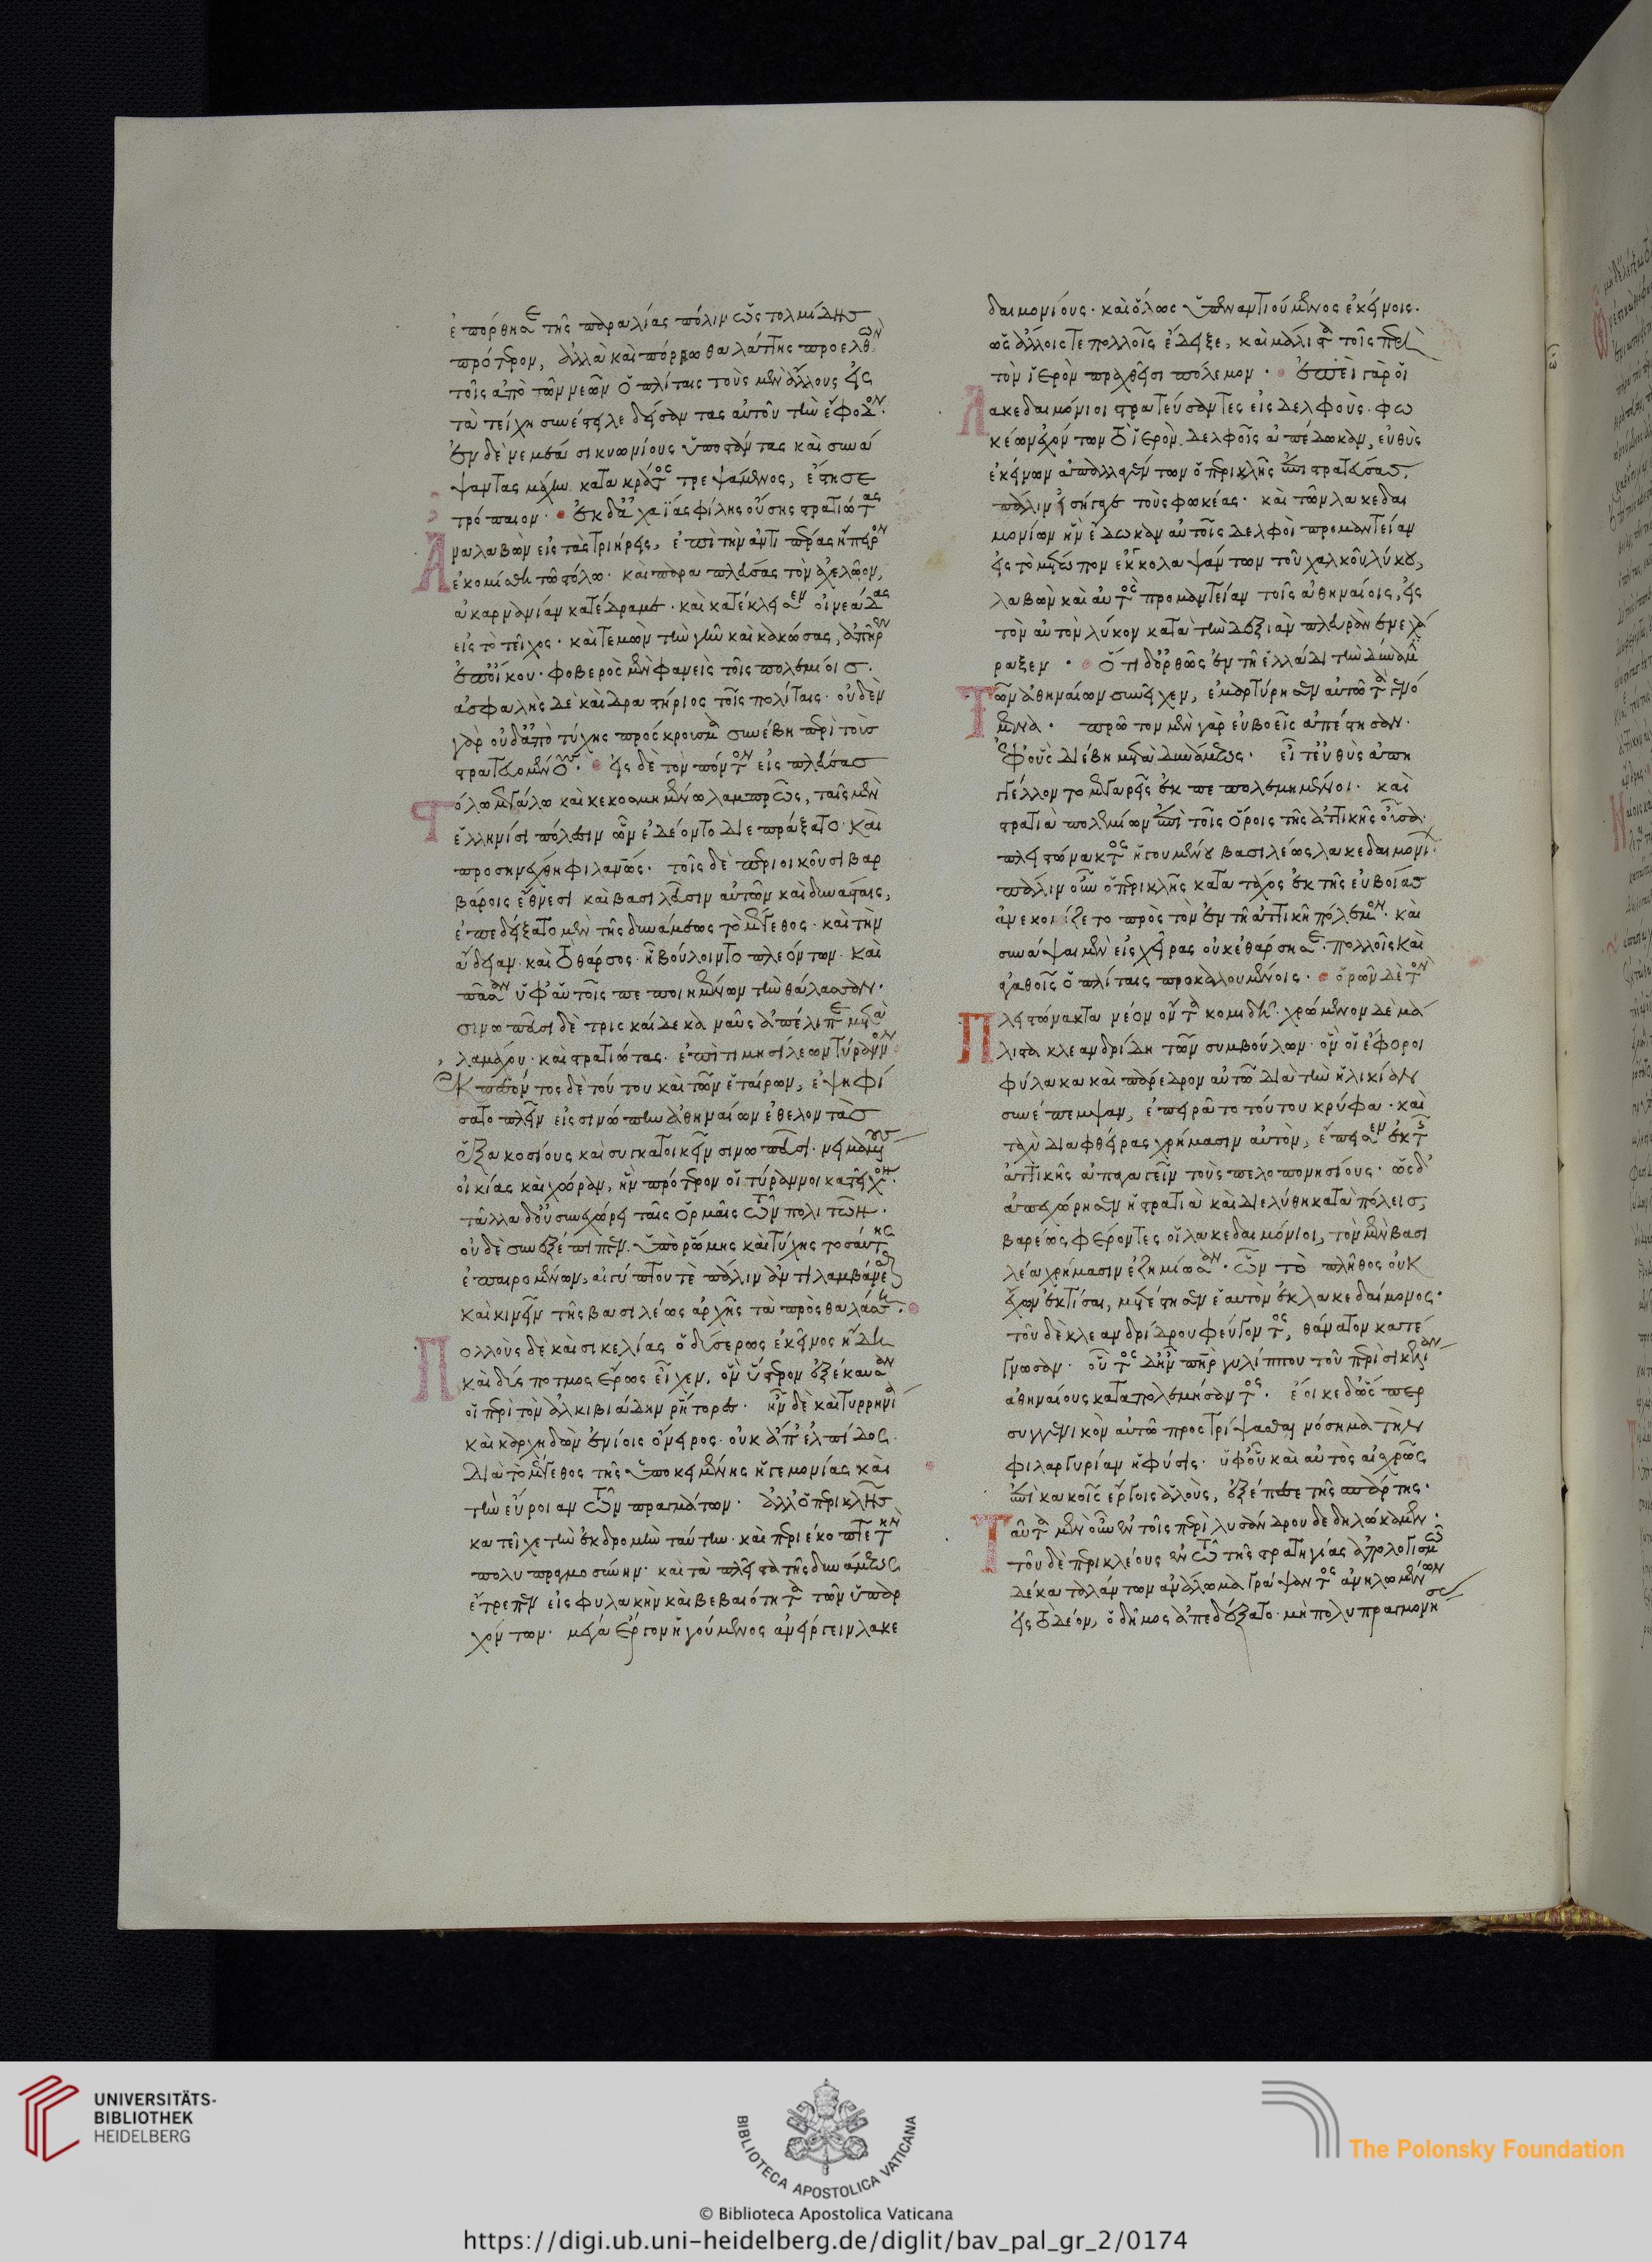 ἐπόρθησε τῆς παραλίας πόλιν ὡς τολμίδης
πρότερον, ἀλλὰ καὶ πόρρω θαλάττης προελθὼν
τοῖς ἀπὸ τῶν νεῶν ὁπλίταις τοὺς μὲν ἄλλους εἰς
τὰ τείχη συνέστειλε δείσαντας αὐτοῦ τὴν ἔφοδον·
ἐν δὲ νεμέαι σικυωνίους ὑποστάντας καὶ συνά
ψαντας μάχην κατακράτος τρεψάμενος, ἔστησε
τρόπαιον· ἐκ δ' ἀχαΐας φίλης οὔσης στρατιώτας
ἀναλαβὼν εἰς τὰς τριήρεις, ἐπὶ τὴν ἀντιπέρας ἤπειρον
ἐκομίσθη τῶ στόλω· καὶ παραπλεύσας τὸν ἀχελῶον,
ἀκαρνανίαν κατέδραμε· καὶ κατέκλεισεν οἰνεάδας
εἰς τὸ τεῖχος· καὶ τεμὼν τὴν γῆν καὶ κακώσας, ἀπῆρεν
ἐπ' οἴκου· φοβερὸς μὲν φανεὶς τοῖς πολεμίοις·
ἀσφαλὴς δὲ καὶ δραστήριος τοῖς πολίταις· οὐδὲν
γὰρ οὐδ' ἀπὸ τύχης πρόσκρουσμα συνέβη περὶ τοὺς
στρατευομένους· εἰς δὲ τὸν πόντον εἰσπλεύσας
στόλω μεγάλω καὶ κεκοσμημένω λαμπρῶς, ταῖς μὲν
ἑλληνίσι πόλεσιν ὧν ἐδέοντο διεπράξατο· καὶ
προσηνέχθη φιλανθρώπως· τοῖς δὲ περιοικοῦσι βαρ
βάροις ἔθνεσι καὶ βασιλεῦσιν αὐτῶν καὶ δυνάσταις,
ἐπεδείξατο μὲν τῆς δυνάμεως τὸ μέγεθος· καὶ τὴν
ἄδειαν· καὶ τὸ θάρσος· ἧ βούλοιντο πλεόντων· καὶ
πᾶσαν ὑφ' αὑτοῖς πεποιημένων τὴν θάλασσαν·
σινωπεῦσι δὲ τρισκαίδεκα ναῦς ἀπέλιπε μετὰ
λαμάχου· καὶ στρατιώτας· ἐπὶ τιμησίλεων τύραννον
ἐκπεσόντος δὲ τούτου καὶ τῶν ἑταίρων, ἐψηφί
σατο πλεῖν εἰς σινώπην ἀθηναίων ἐθελοντὰς
ἑξακοσίους καὶ συγκατοικεῖν σινωπεῦσι· νειμαμένους
οἰκίας καὶ χώραν, ἣν πρότερον οἱ τύραννοι κατεῖχον·
τἆλλα δ' οὐ συνεχώρει ταῖς ὁρμαῖς τῶν πολιτῶν·
οὐδὲ συνεξέπιπτεν· ὑπὸ ῥώμης καὶ τύχης τοσαύτης
ἐπαιρομένων, αἰγύπτου τὲ πάλιν ἀντιλαμβάνεσθαι
καὶ κινεῖν τῆς βασιλέως ἀρχῆς τὰ πρὸς θαλάσση·
Πολλοὺς δὲ καὶ σικελίας ὁ δύσερως ἐκεῖνος ἤδη
καὶ δύσποτμος ἔρως εἶχεν, ὃν ὕστερον ἐξέκαυσαν
οἱ περὶ τὸν ἀλκιβιάδην ῥήτορες· ἦν δὲ καὶ τυρρηνία
καὶ καρχηδὼν ἐνίοις ὄνειρος· οὐκ ἀπ' ἐλπίδος
διὰ τὸ μέγεθος τῆς ὑποκειμένης ἡγεμονίας καὶ
τὴν εὔροιαν τῶν πραγμάτων· ἀλλ' ὁ περικλῆς
κατεῖχε τὴν ἐκδρομὴν ταύτην· καὶ περιέκοπτε τὴν
πολυπραγμοσύνην· καὶ τὰ πλεῖστα τῆς δυνάμεως
ἔτρεπεν εἰς φυλακὴν καὶ βεβαιότητα τῶν ὑπαρ
χόντων· μέγα ἔργον ἡγούμενος ἀνείργειν λακε
δαιμονίους· καὶ ὅλως ὑπεναντιούμενος ἐκείνοις·
ὡς ἄλλοις τε πολλοῖς ἔδειξε, καὶ μάλιστα τοῖς περὶ
τὸν ἱερὸν πραχθεῖσι πόλεμον· ἐπεὶ γὰρ οἱ
Λακεδαιμόνιοι στρατεύσαντες εἰς δελφοὺς· φω
κέων ἐχόντων τὸ ἱερὸν δελφοῖς ἀπέδωκαν, εὐθὺς
ἐκείνων ἀπαλλαγέντων ὁ περικλῆς ἐπιστρατεύσας,
πάλιν εἰσήγαγε τοὺς φωκέας· καὶ τῶν λακεδαι
μονίων ἣν ἔδωκαν αὐτοῖς δελφοὶ προμαντείαν
εἰς τὸ μέτωπον ἐκκολαψάντων τοῦ χαλκοῦ λύκου,
λαβὼν καὶ αὐτὸς προμαντείαν τοῖς ἀθηναίοις, εἰς
τὸν αὐτὸν λύκον κατὰ τὴν δεξιὰν πλευρὰν ἐνεχά
ραξεν· Ὅτι δ' ὀρθῶς ἐν τῆ ἑλλάδι τὴν δύναμιν
Τῶν ἀθηναίων συνεῖχεν, ἐμαρτύρησεν αὐτῶ τὰ γενό
μενα· πρῶτον μὲν γὰρ εὐβοεῖς ἀπέστησαν·
ἐφ' οὓς διέβη μετὰ δυνάμεως· εἶτ' εὐθὺς ἀπηγ
γέλλοντο μεγαρεῖς ἐκπεπολεμημένοι· καὶ
στρατιὰ πολεμίων ἐπὶ τοῖς ὅροις τῆς ἀττικῆς οὖσα·
πλειστώνακτος ἡγουμένου βασιλέως λακεδαιμονίων·
πάλιν οὖν ὁ περικλῆς κατὰ τάχος ἐκ τῆς εὐβοίας
ἀνεκομίζετο πρὸς τὸν ἐν τῆ ἀττικῆ πόλεμον· καὶ
συνάψαι μὲν εἰς χεῖρας οὐκ ἐθάρσησε· πολλοῖς καὶ
ἀγαθοῖς ὁπλίταις προκαλουμένοις· ὁρῶν δὲ τὸν
Πλειστώνακτα νέον ὄντα κομιδῆ· χρώμενον δὲ μά
λιστα κλεανδρίδη τῶν συμβούλων· ὃν οἱ ἔφοροι
φύλακα καὶ πάρεδρον αὐτῶ διὰ τὴν ἡλικίαν
συνέπεμψαν, ἐπειρᾶτο τούτου κρύφα· καὶ
ταχὺ διαφθείρας χρήμασιν αὐτὸν, ἔπεισεν ἐκ τῆς
ἀττικῆς ἀπαγαγεῖν τοὺς πελοποννησίους· ὡς δ'
ἀπεχώρησεν ἡ στρατιὰ καὶ διελύθη κατὰ πόλεις,
βαρέως φέροντες οἱ λακεδαιμόνιοι, τὸν μὲν βασι
λέα χρήμασιν ἐζημίωσαν· ὧν τὸ πλῆθος οὐκ
ἔχων ἐκτίσαι, μετέστησεν ἑαυτὸν ἐκ λακεδαίμονος·
τοῦ δὲ κλεανδρίδου φεύγοντος, θάνατον κατέ
γνωσαν· οὗτος δ' ἦν πατὴρ γυλίππου τοῦ περὶ σικελίαν
ἀθηναίους καταπολεμήσαντος· ἔοικε δ' ὥσπερ
συγγενικὸν αὐτῶ προστρίψασθαι νόσημα τὴν
φιλαργυρίαν ἡ φύσις· ὑφ' οὗ καὶ αὐτὸς αἰσχρῶς
ἐπὶ κακοῖς ἔργοις ἁλοὺς, ἐξέπεσε τῆς σπάρτης·
Ταῦτα μὲν οὖν ἐν τοῖς περὶ λυσάνδρου δεδηλώκαμεν·
τοῦ δὲ περικλέους ἐν τῶ τῆς στρατηγίας ἀπολογισμῶ
δέκα ταλάντων ἀνάλωμα γράψαντος ἀνηλωμένων
εἰς τὸ δέον, ὁ δῆμος ἀπεδέξατο· μὴ πολυπραγμονήσας
UNIVERSITÄTS-
BIBLIOTHEK
HEIDELBERG
BIBLIOTECA APOSTOLICA VATICANA
© Biblioteca Apostolica Vaticana
The Polonsky Foundation
https://digi.ub.uni-heidelberg.de/diglit/bav_pal_gr_2/0174